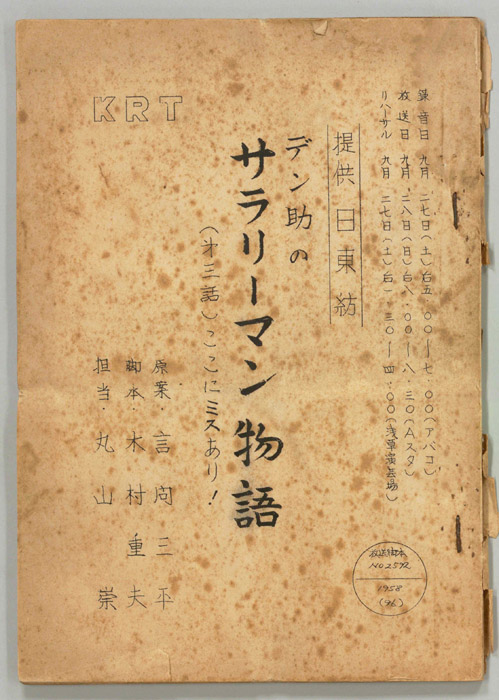 録音日 九月 二七日(土)台五.〇〇〜七.〇〇(アバコ)
放送日 九月.二八日(日)台八.〇〇〜八.三〇(Aスタ)
リハーサル 九月 二七日(土)台一.三〇〜四.〇〇(浅草演芸場)
提供 日東紡
デン助の
サラリーマン物語
(才三話)ここにミスあり!
KRT
原案.言問三平
脚本.木村重夫
担当.丸山 崇
放送脚本
NO2592
1958
(96)